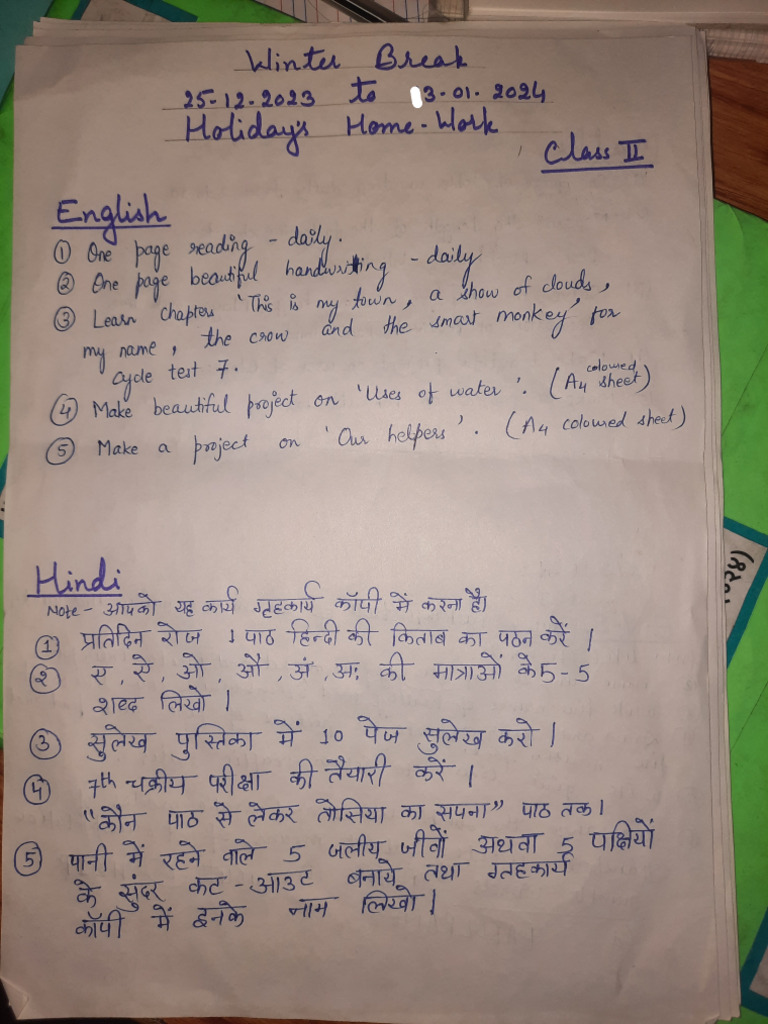 Winter Break
25-12-2023 to 13-01-2024
Holiday's Home-Work
Class II
English
① One page reading - daily.
② One page beautiful handwriting - daily
③ Learn chapters 'This is my town, a show of clouds,
my name, the crow and the smart monkey' for
cycle test 7.
④ Make beautiful project on 'Uses of water'. (A4 coloured sheet)
⑤ Make a project on 'Our helpers'. (A4 coloured sheet)
Hindi
Note- आपको यह कार्य गृहकार्य कॉपी में करना है।
① प्रतिदिन रोज 1 पाठ हिन्दी की किताब का पठन करें |
② ए, ऐ, ओ, औ, अं, अः की मात्राओं के 5-5
शब्द लिखो |
③ सुलेख पुस्तिका में 10 पेज सुलेख करो |
④ 7th चक्रीय परीक्षा की तैयारी करें |
"कौन पाठ से लेकर तोसिया का सपना" पाठ तक।
⑤ पानी में रहने वाले 5 जलीय जीवों अथवा 5 पक्षियों
के सुंदर कट-आउट बनाये तथा गृहकार्य
कॉपी में इनके नाम लिखो |